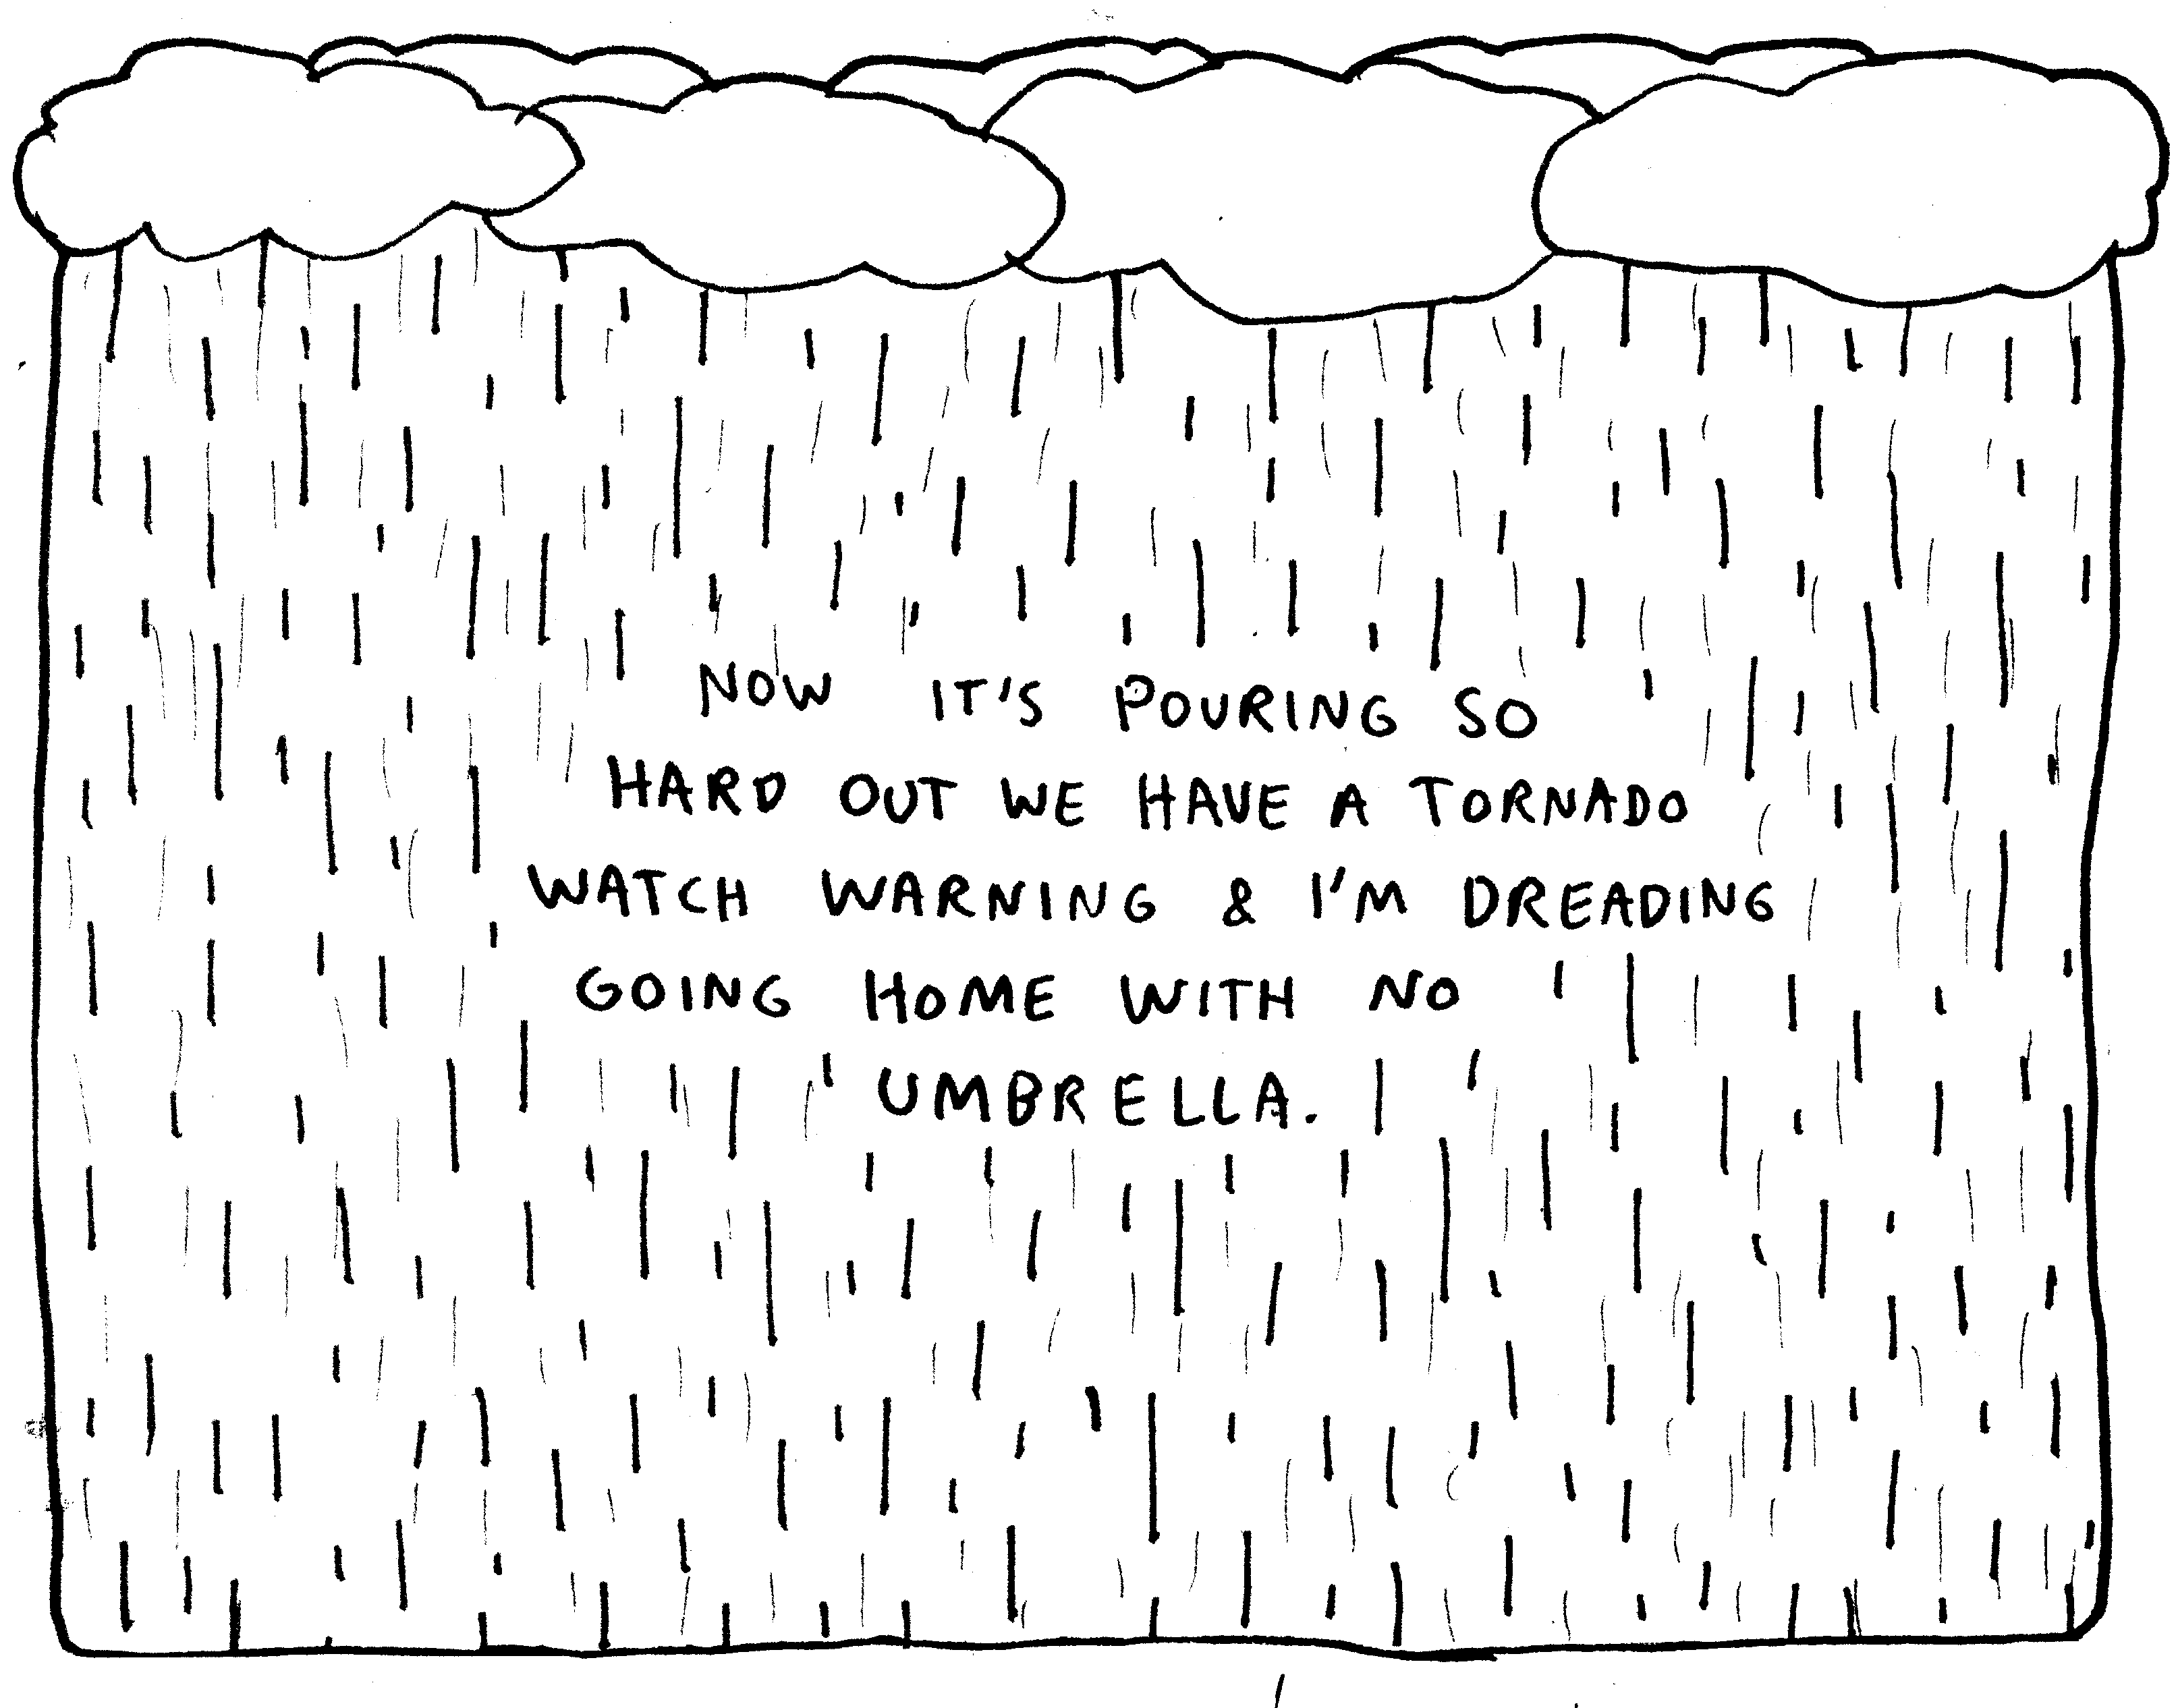 NOW IT'S POURING SO
HARD OUT WE HAVE A TORNADO
WATCH WARNING & I'M DREADING
GOING HOME WITH NO
UMBRELLA.